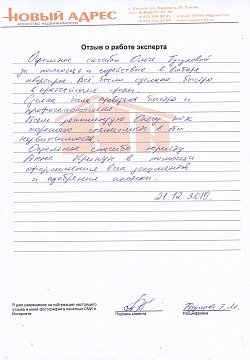 НОВЫЙ АДРЕС
АГЕНТСТВО НЕДВИЖИМОСТИ
Отзыв о работе эксперта
Огромное спасибо Ольге
за помощь и содействие в выборе
квартиры. Всё было сделано быстро
в кратчайшие сроки.
Сделка была проведена быстро и
профессионально.
Всем рекомендую Ольгу как
хорошего специалиста в
недвижимости.
Огромное спасибо юристу
Анне в помощи
оформления всех документов
и одобрения ипотеки.
21.12.2019.
Я даю разрешение на публикацию настоящего
отзыва и моей фотографии в печатных СМИ и
Интернете
Подпись клиента
Расшифровка